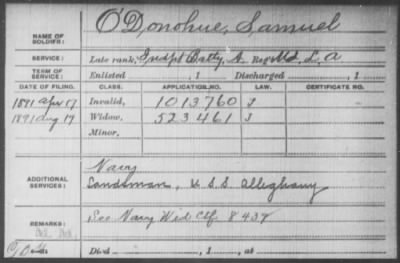 O'Donohue, Samuel
NAME OF SOLDIER:
SERVICE: Late rank, Indpt Batty A Reg't Md. L. A
TERM OF SERVICE: Enlisted , 1 Discharged , 1
DATE OF FILING. CLASS. APPLICATION NO. LAW. CERTIFICATE NO.
1891 Apr 17 Invalid, 1013760 J
1891 Aug 17 Widow, 523461 J
Minor,
Navy
ADDITIONAL SERVICES: Landsman, U.S.S. Alleghany
REMARKS: See Navy Wid Ctf 8437
Died , 1 , at